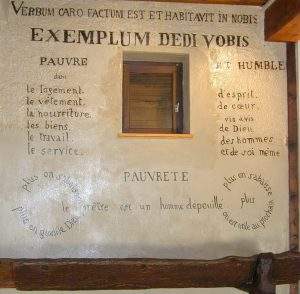 VERBUM CARO FACTUM EST ET HABITAVIT IN NOBIS
EXEMPLUM DEDI VOBIS
PAUVRE
dans
le logement.
le vêtement.
la nourriture.
les biens.
le travail.
le service.
ET HUMBLE
d'esprit.
de cœur.
vis avis
de Dieu.
des hommes
et de soi même
PAUVRETE
le prêtre est un homme dépouillé
plus on s'abaisse
plus on glorifie Dieu
plus on s'abaisse
plus
on est utile au prochain